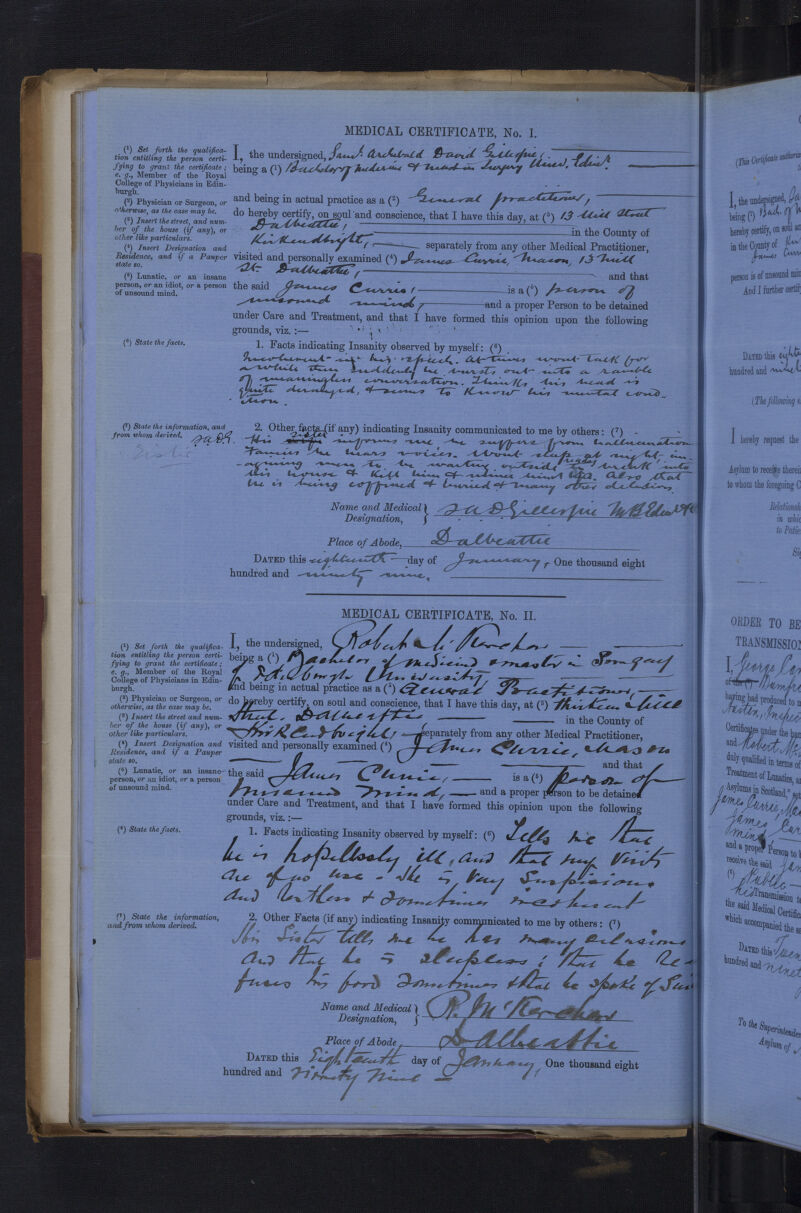 MEDICAL CERTIFICATE, No. I.
(¹) Set forth the qualifica-
tion entitling the person certi-
fying to grant the certificate;
e. g., Member of the Royal
College of Physicians in Edin-
burgh.
(²) Physician or Surgeon, or
otherwise, as the case may be.
(³) Insert the street, and num-
ber of the house (if any), or
other like particulars.
(⁴) Insert Designation and
Residence, and if a Pauper
state so.
(⁵) Lunatic, or an insane
person, or an idiot, or a person
of unsound mind.
I, the undersigned, Saml. Archibald David Gillespie,
being a (¹) Bachelor of Medicine & Mast in Surgery Univ. Edinr.
and being in actual practice as a (²) General practitioner,
do hereby certify, on soul and conscience, that I have this day, at (³) 13 Mill Street
Dalbeattie, in the County of
Kirkcudbright, separately from any other Medical Practitioner,
visited and personally examined (⁴) James Currie, Mason, 13 Mill
St. Dalbeattie, and that
the said James Currie, is a (⁵) person of
unsound mind, and a proper Person to be detained
under Care and Treatment, and that I have formed this opinion upon the following
grounds, viz. :—
(⁶) State the facts.
1. Facts indicating Insanity observed by myself: (⁶)
Incoherent in his speech. At times wont talk for
a while then suddenly he bursts out into a ramble
of meaningless conversation. Thinks his head is
quite deranged, & seems to know his mental cond-
ition.
(⁷) State the information, and
from whom derived.
S.A.D.G.
Sister
2. Other facts (if any) indicating Insanity communicated to me by others: (⁷)
His sister informs me he suffers from hallucination
he hears voices. Wont sleep at night im-
agining men to be waiting outside ready to break into
his house & kill him & . Also that
he is being coffined & buried & many other delusions.
Name and Medical Designation, S A D Gillespie M.B. Edin
Place of Abode, Dalbeattie
DATED this eighteenth day of January, One thousand eight
hundred and ninety nine.
MEDICAL CERTIFICATE, No. II.
(¹) Set forth the qualifica-
tion entitling the person certi-
fying to grant the certificate;
e. g., Member of the Royal
College of Physicians in Edin-
burgh.
(²) Physician or Surgeon, or
otherwise, as the case may be.
(³) Insert the street and num-
ber of the house (if any), or
other like particulars.
(⁴) Insert Designation and
Residence, and if a Pauper
state so.
(⁵) Lunatic, or an insane
person, or an idiot, or a person
of unsound mind.
I, the undersigned, Robert Mc Kerchar
being a (¹) Bachelor of Medicine & Master in Surgery
of Edinburgh University
and being in actual practice as a (²) General Practitioner,
do hereby certify, on soul and conscience, that I have this day, at (³) Thirteen Mill
Street, Dalbeattie, in the County of
Kirkcudbright, separately from any other Medical Practitioner,
visited and personally examined (⁴) James Currie, Mason
and that
the said James Currie, is a (⁵) person of
unsound mind, and a proper person to be detained
under Care and Treatment, and that I have formed this opinion upon the following
grounds, viz. :—
(⁶) State the facts.
1. Facts indicating Insanity observed by myself: (⁶) Tells me that
he is hopelessly ill, and that my visits
are of no use. He is very suspicious
and restless & sometimes incoherent
(⁷) State the information,
and from whom derived.
2. Other Facts (if any) indicating Insanity communicated to me by others: (⁷)
His Sister tells me he has many delusions
and that he is sleepless; that he re-
fuses his food sometimes & that he spoke of
Name and Medical Designation, R. McKerchar
Place of Abode, Dalbeattie
DATED this Eighteenth day of January, One thousand eight
hundred and Ninety Nine
I, the undersigned,
being (¹) Bach. of
hereby certify, on soul
in the County of
James
person is of unsound
And I further certify
DATED this
hundred and
(The following
I hereby request the
Asylum to receive therein
to whom the foregoing
Relationship
in which
to Patient
ORDER TO BE
TRANSMISSION
I, George
having had produced to
Certificates under the
and Robert
duly qualified in terms of
Treatment of Lunatics,
Asylums in Scotland,"
James Currie,
James
mind,
and a proper Person to
receive the said
Transmission
the said Medical
which accompanied the
DATED this
hundred and
To the Superintendent
Asylum of